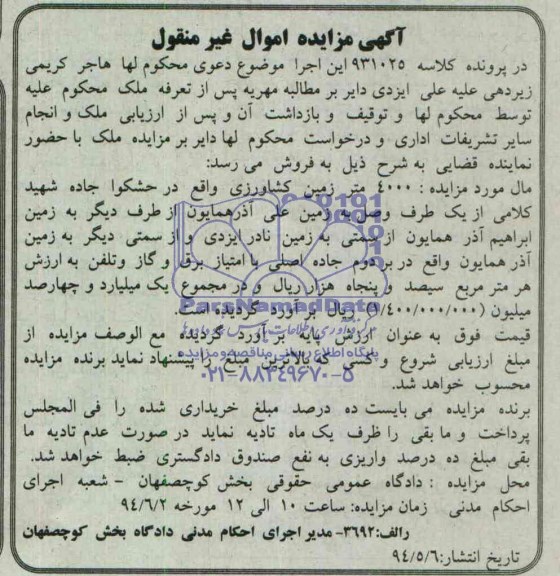 آگهی مزایده اموال غیر منقول
در پرونده کلاسه ۹۳۱۰۲۵ این اجرا موضوع دعوی محکوم لها هاجر کریمی
زیردهی علیه علی ایزدی دایر بر مطالبه مهریه پس از تعرفه ملک محکوم علیه
توسط محکوم لها و توقیف و بازداشت آن و پس از ارزیابی ملک و انجام
سایر تشریفات اداری و درخواست محکوم لها دایر بر مزایده ملک با حضور
نماینده قضایی به شرح ذیل به فروش می رسد:
مال مورد مزایده : ۴۰۰۰ متر زمین کشاورزی واقع در حشکوا جاده شهید
کلامی از یک طرف وصل به زمین علی آذرهمایون از طرف دیگر به زمین
ابراهیم آذر همایون از سمتی به زمین نادر ایزدی و از سمتی دیگر به زمین
آذر همایون واقع در بر دوم جاده اصلی با امتیاز برق و گاز وتلفن به ارزش
هر متر مربع سیصد و پنجاه هزار ریال و در مجموع یک میلیارد و چهارصد
میلیون (۱/۴۰۰/۰۰۰/۰۰۰) ریال بر آورد گردیده است.
ParsNamadData
قیمت فوق به عنوان ارزش پایه بر آورد گردیده مع الوصف مزایده از
مبلغ ارزیابی شروع و کسی که بالاترین مبلغ را پیشنهاد نماید برنده مزایده
پایگاه اطلاع رسانی مناقصه و مزایده
محسوب خواهد شد.
۰۲۱-۸۸۳۴۹۶۷۰-۵
برنده مزایده می بایست ده درصد مبلغ خریداری شده را فی المجلس
پرداخت و ما بقی را ظرف یک ماه تادیه نماید در صورت عدم تادیه ما
بقی مبلغ ده درصد واریزی به نفع صندوق دادگستری ضبط خواهد شد.
محل مزایده : دادگاه عمومی حقوقی بخش کوچصفهان - شعبه اجرای
احکام مدنی زمان مزایده: ساعت ۱۰ الی ۱۲ مورخه ۹۴/۶/۲
رالف:۳۶۹۲- مدیر اجرای احکام مدنی دادگاه بخش کوچصفهان
تاریخ انتشار:۹۴/۵/۶